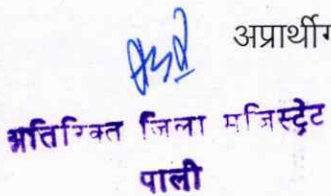 अप्रार्थीग
अतिरिक्त जिला मजिस्ट्रेट
पाली